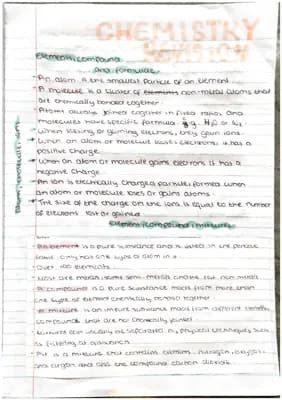 CHEMISTRY
REVISION
Elements, compound
and formulae
- An atom is the smallest particle of an element.
- A molecule is a cluster of non-metal atoms that
are chemically bonded together.
- Atoms always joined together in fixed ratio, and
molecules have specific formula. e.g. H₂O or
- When losing or gaining electrons, they gain ions.
- When an atom or molecule loses electrons it has a
positive charge.
- When an atom or molecule gains electrons it has a
negative charge.
- An ion is electrically charged particle, formed when
an atom or molecule loses or gains atoms.
- The size of the charge on the ions is equal to the number
of electrons lost or gained.
Atoms, molecules, ions
Elements, compounds, mixtures
- An element is a pure substance and is listed in the periodic
table. Only has one type of atom in it.
- Over 100 elements
- Most are metals, some semi-metals and the rest non-metals
- A compound is a pure substance made from more than
one type of element chemically bonded together.
- A mixture is an impure substance made from different
compounds that are not chemically joined.
- Mixtures can usually be separated by physical techniques such
as filtering or
- Air is a mixture that contains elements nitrogen, oxygen
and argon and also the compound carbon dioxide.